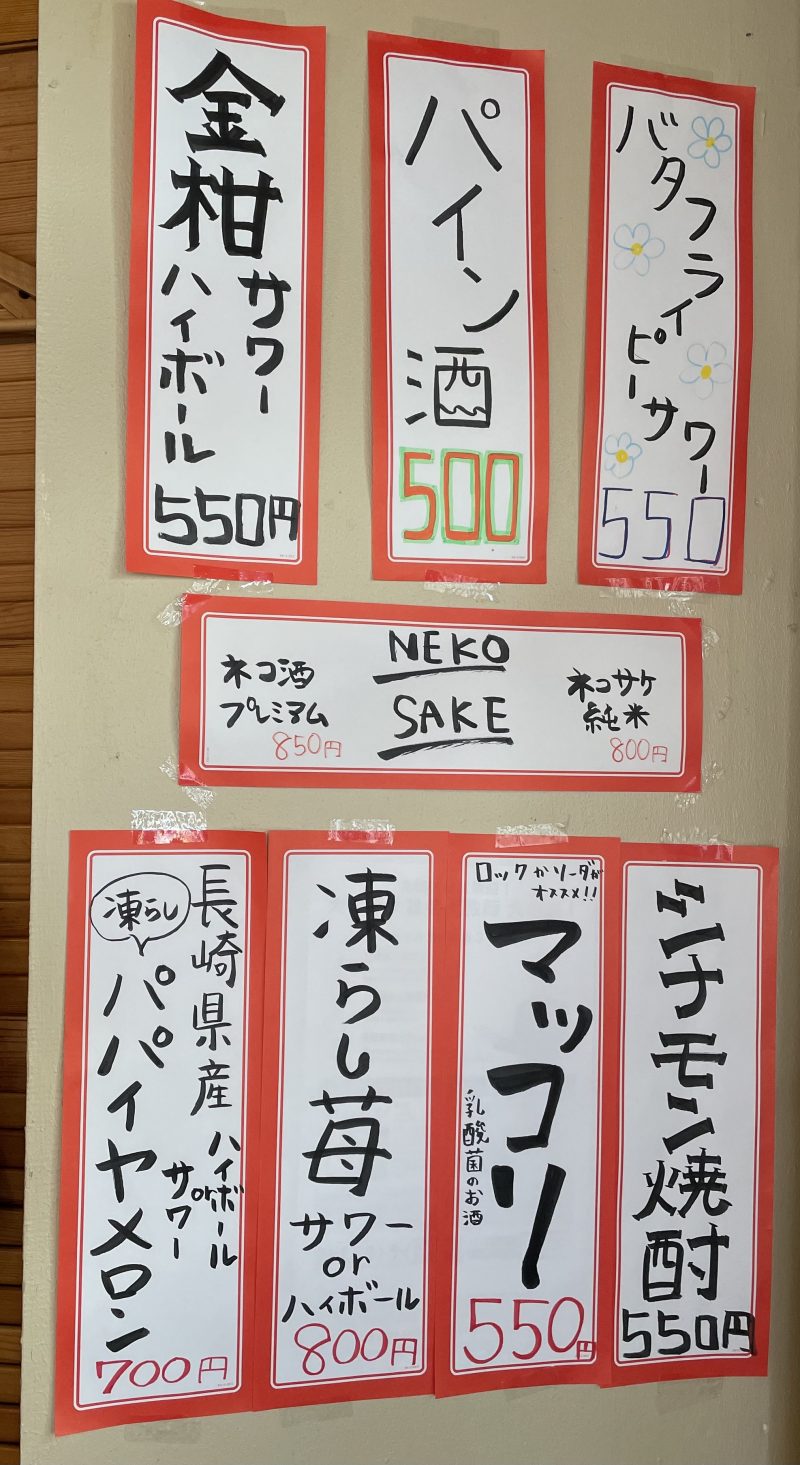 バタフライピーサワー
550
パイン酒
500
金柑
サワー
ハイボール
550円
NEKO
SAKE
ネコ酒
プレミアム
850円
ネコサケ
純米
800円
シナモン焼酎
550円
ロックかソーダが
オススメ!!
マッコリ
乳酸菌のお酒
550円
凍らし苺
サワー
or
ハイボール
800円
長崎県産
凍らし
パパイヤメロン
ハイボール
or
サワー
700円